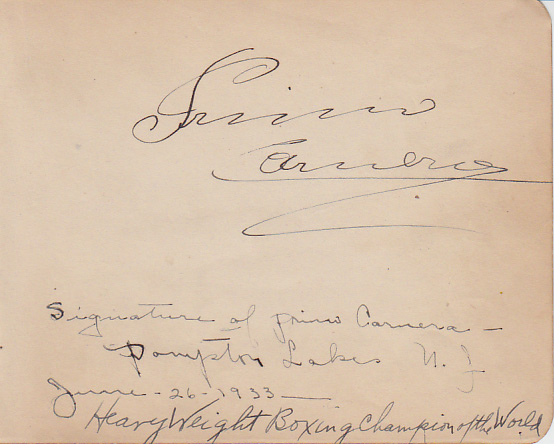 Primo
Carnera
Signature of Primo Carnera —
Pompton Lakes N. J.
June - 26 - 1933 —
Heavy Weight Boxing Champion of the World